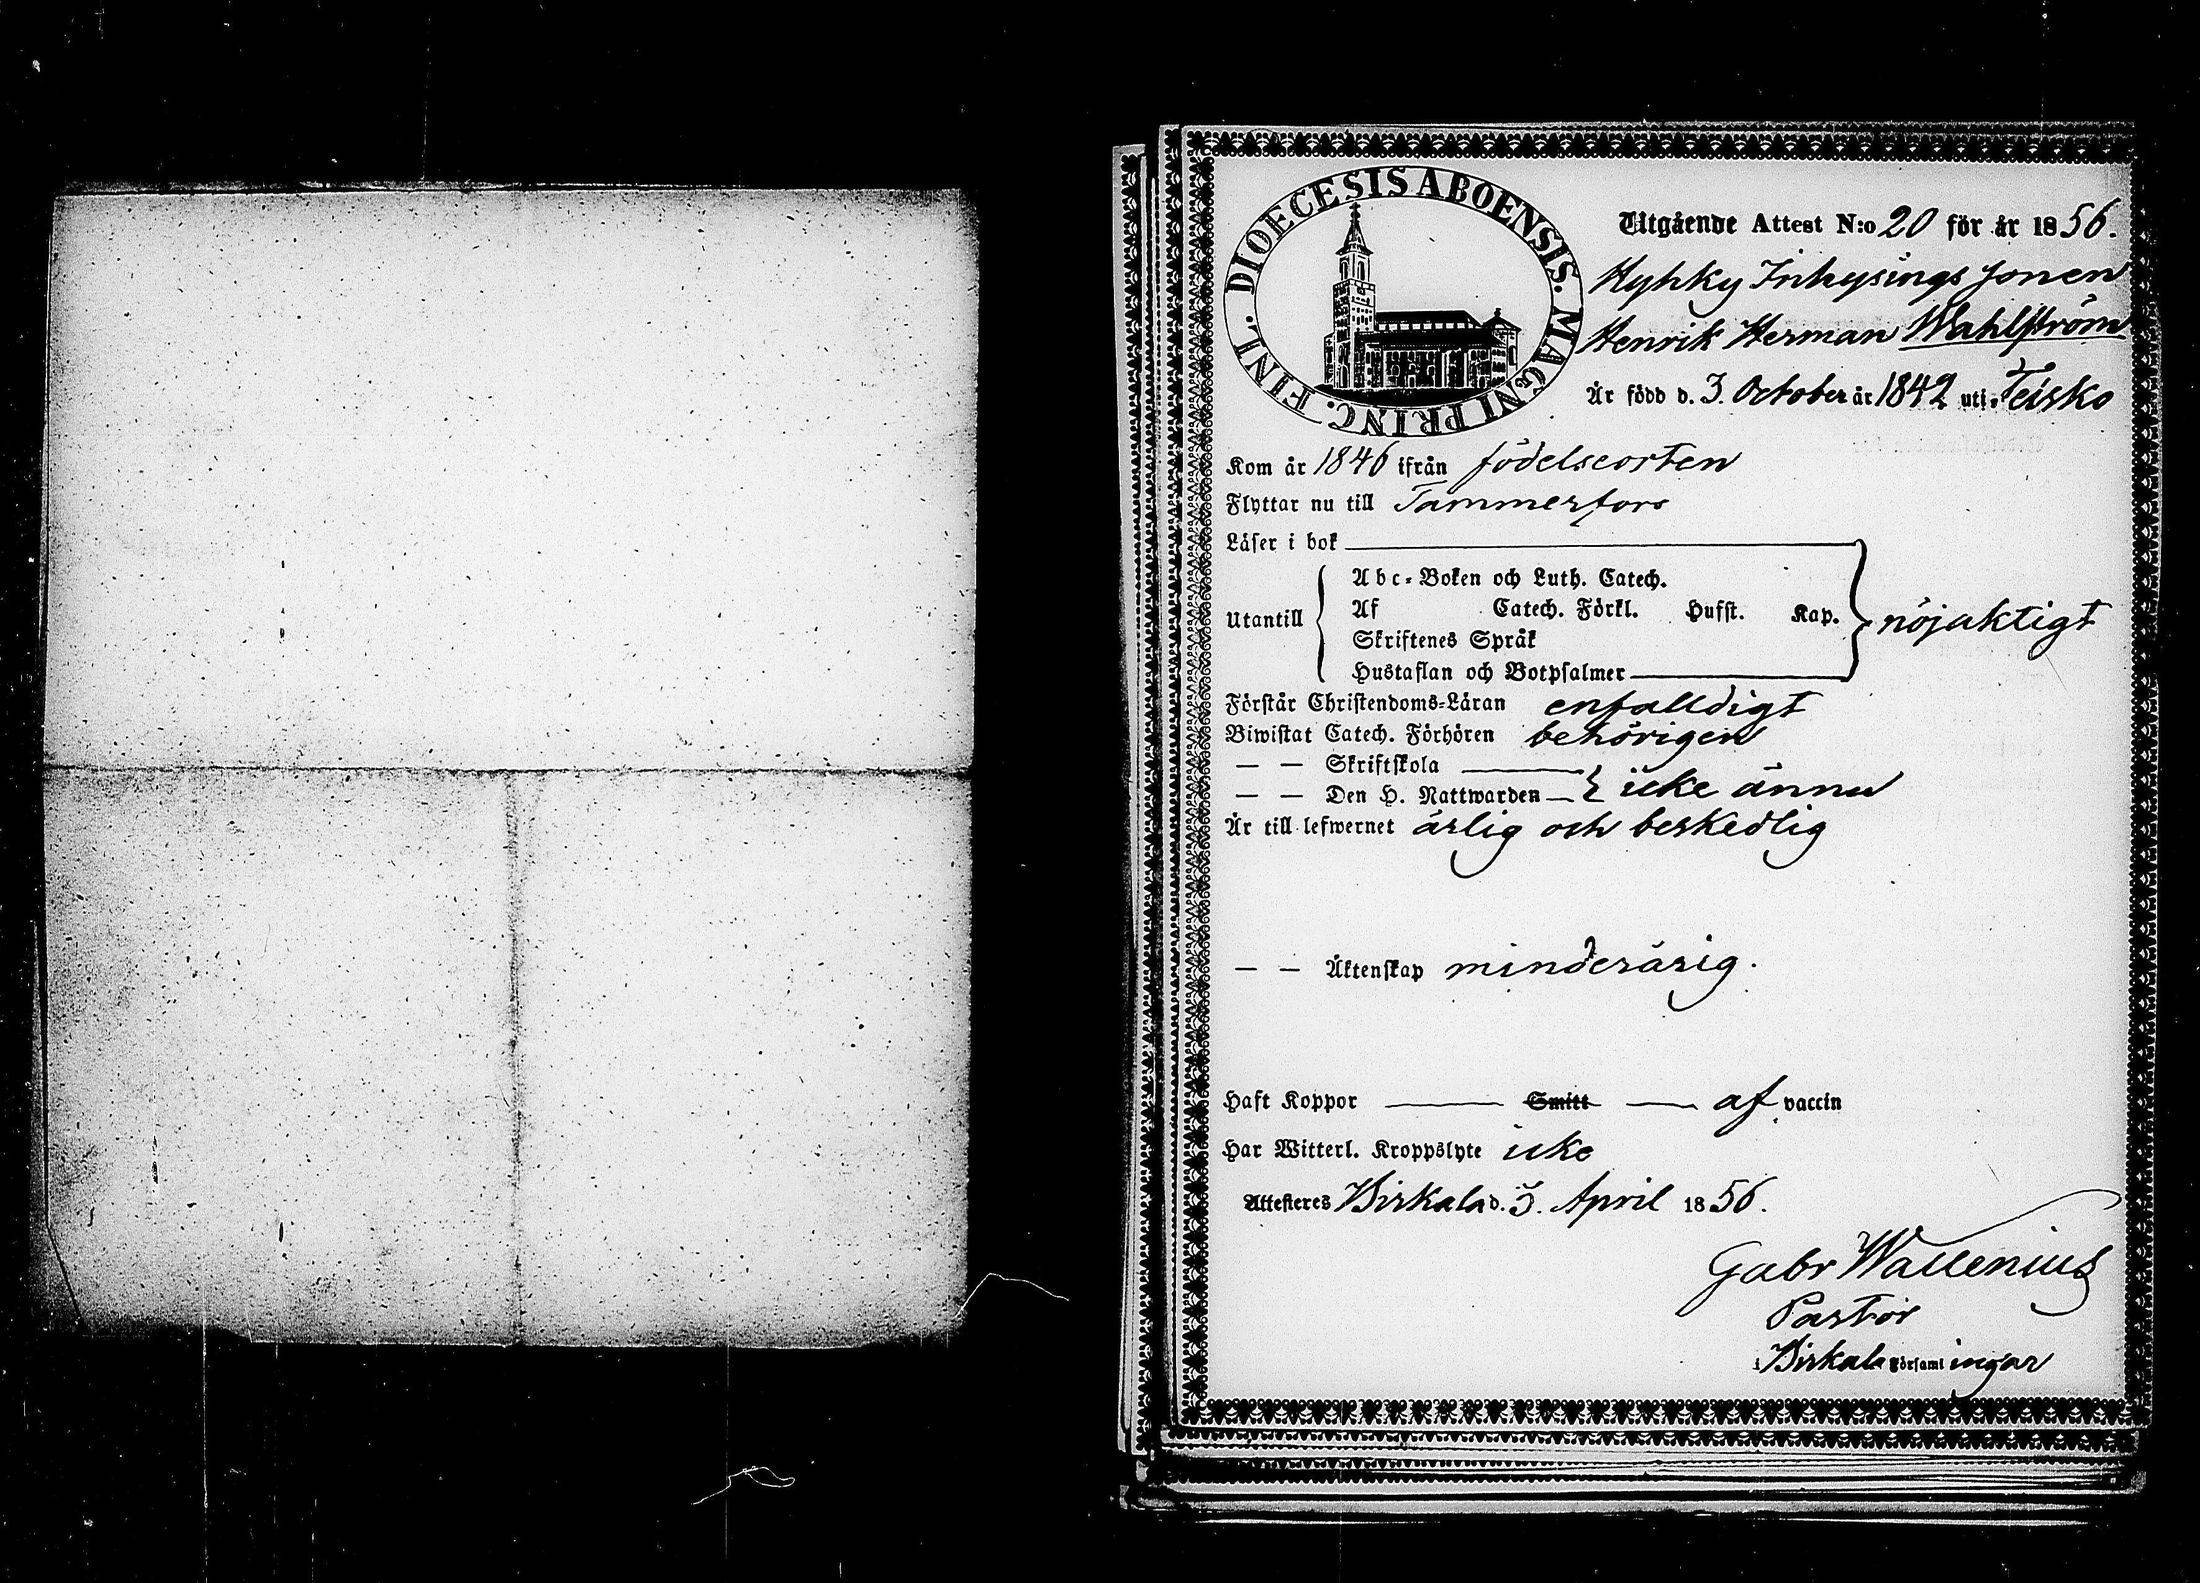 DIOECESIS ABOENSIS. MAGNI PRINC. FINL.
Utgående Attest N:o 20 för år 1856.
Hyhky Inhysings Sonen
Henrik Herman Wahlström
Är född d. 3. October år 1842 uti Teisko
Kom år 1846 ifrån födelseorten
Flyttar nu till Tammerfors
Läser i bok
Utantill
Abc-Boken och Luth. Catech.
Af Catech. Förkl. Hufst. Kap.
Skriftenes Språk
Hustaflan och Botpsalmer
nöjaktigt
Förstår Christendoms-Läran enfalldigt
Biwistat Catech. Förhören behörigen
— — Skriftskola
— — Den H. Nattwarden
icke ännu
Är till lefwernet ärlig och beskedlig
— — Äktenskap minderårig.
Haft Koppor — Smitt — af vaccin
Har Witterl. Kroppslyte icke
Attesteres Birkala d. 3. April 1856.
Gabr Wallenius
Pastor
i Birkala Församlingar